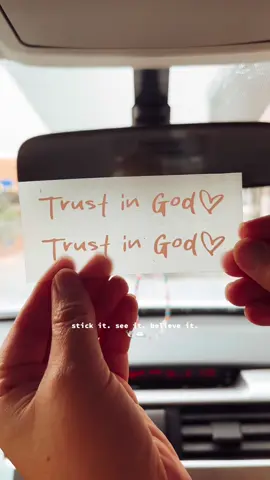 Trust in God♡
Trust in God♡
stick it. see it. believe it.